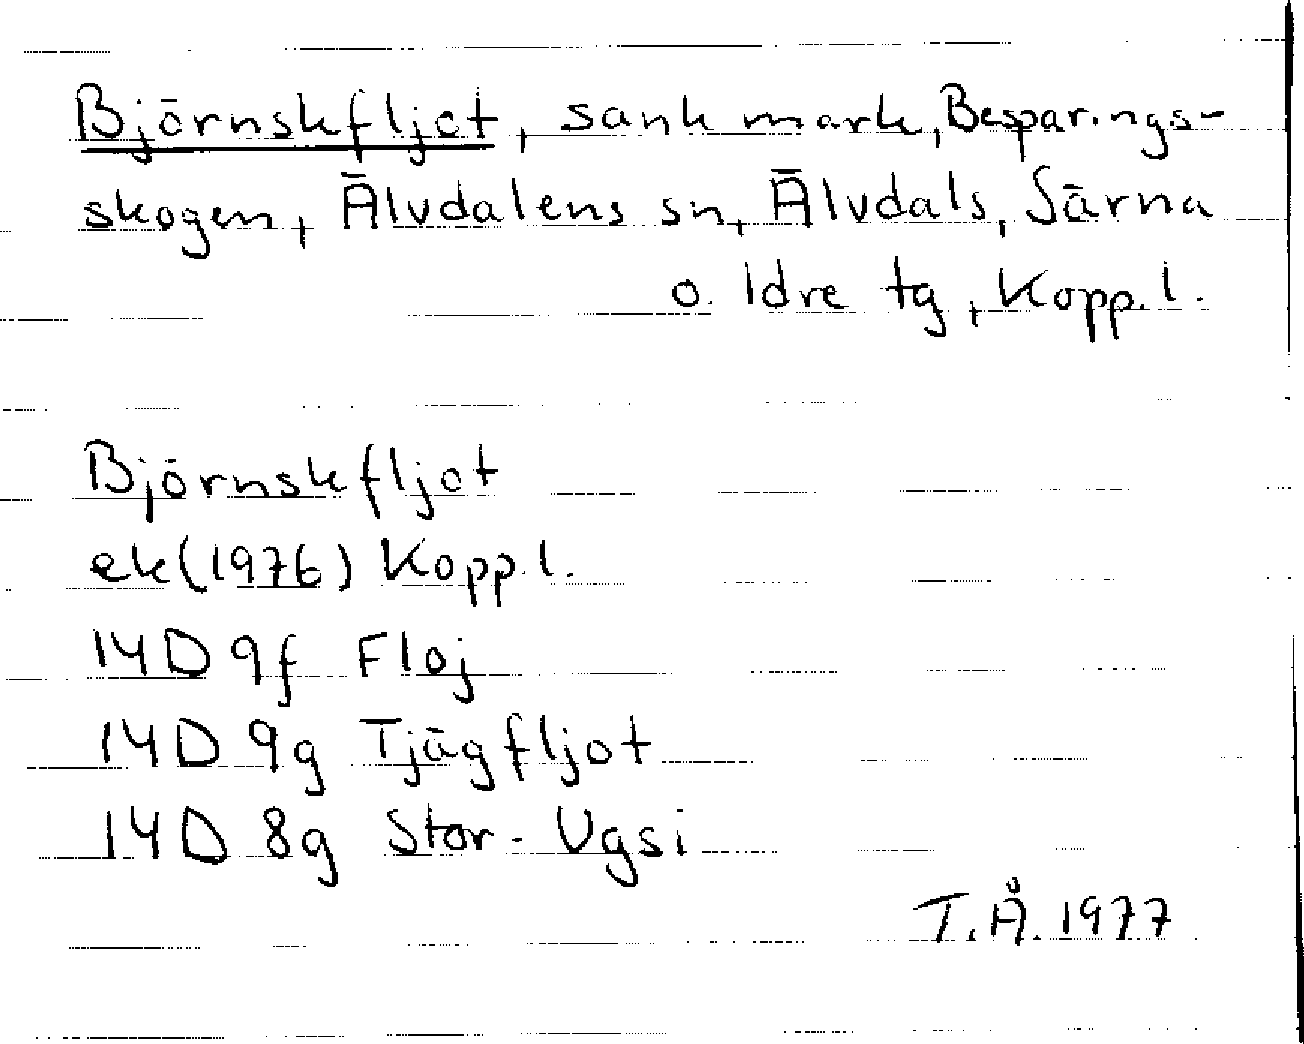 Björnskfljot, sank mark, Besparings-
skogen, Älvdalens sn, Älvdals, Särna
o. Idre tg, Kopp. l.
Björnskfljot
ek (1976) Kopp. l.
14D 9f Floj
14D 9g Tjägfljot
14D 8g Stor-Ugsi
T.Å. 1977